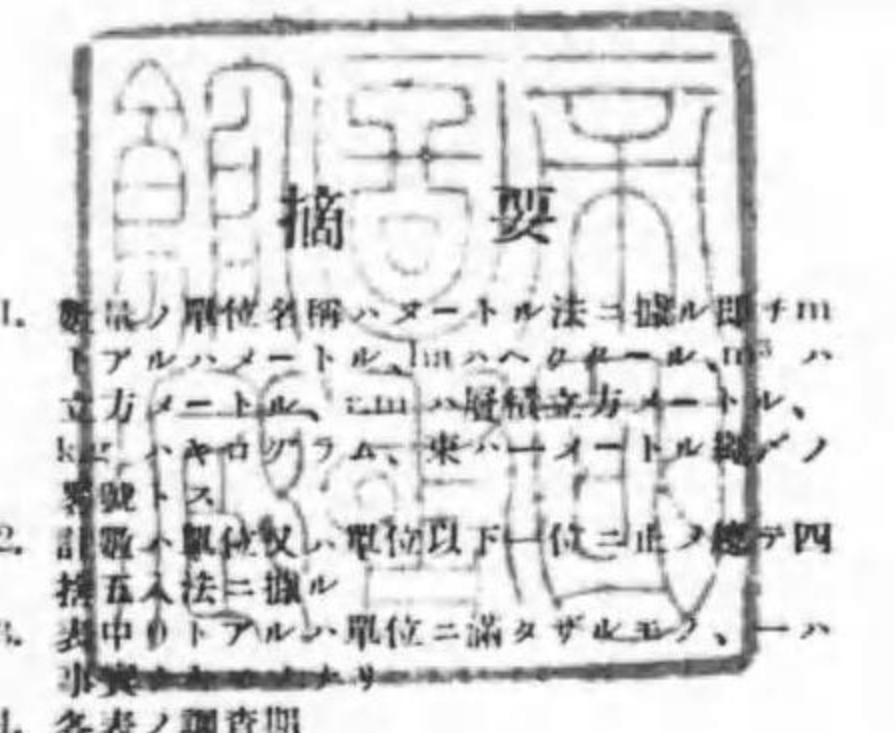 摘要
1. 數量ノ單位名稱ハメートル法ニ據ル卽チm
トアルハメートル、haハヘクタール、m³ハ
立方メートル、rmハ層積立方メートル、
kg.ハキログラム、束ハ一メートル繩〆ノ
畧號トス
2. 計數ハ單位又ハ單位以下一位ニ止メ總テ四
捨五入法ニ據ル
3. 表中0トアルハ單位ニ滿タザルモノ、ーハ
事實ナキモノナリ
4. 各表ノ調査期